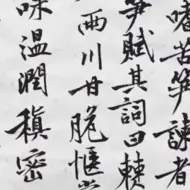 嗜苦笋諫者
笋賦其詞曰僰
兩川甘脆愜當
味溫潤稹密